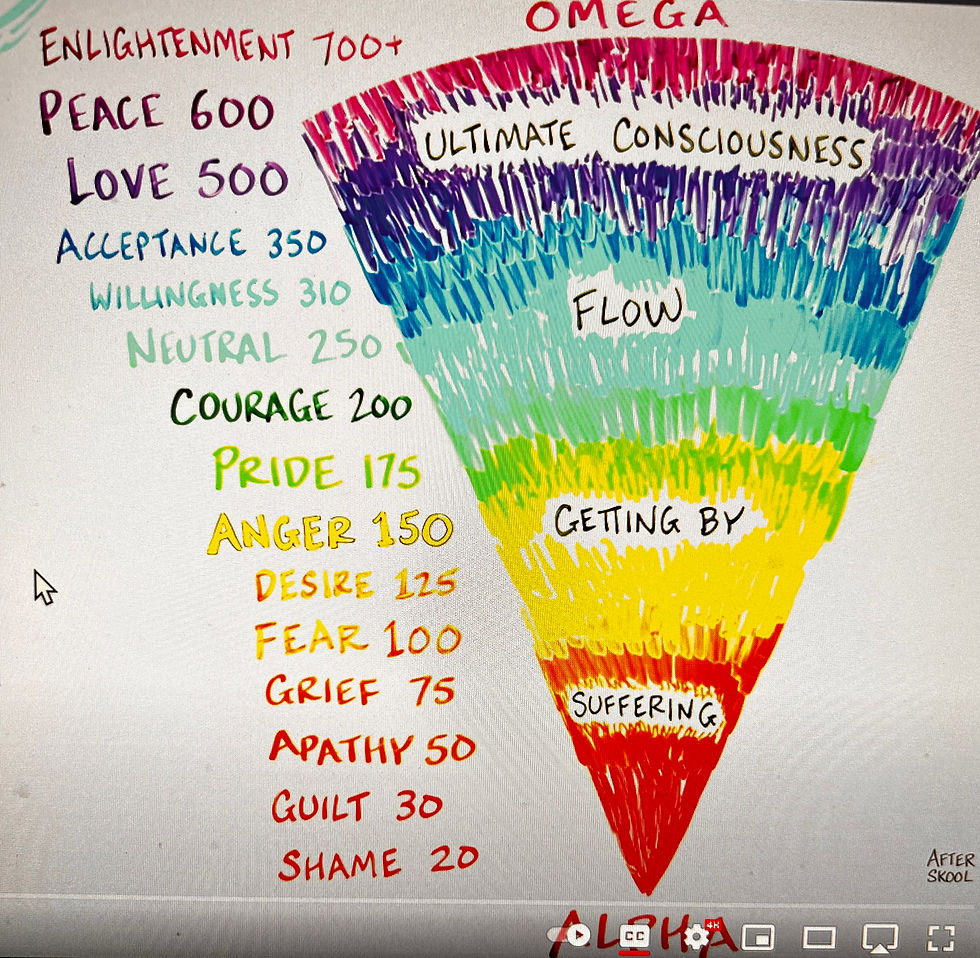 OMEGA
ENLIGHTENMENT 700+
PEACE 600
LOVE 500
ACCEPTANCE 350
WILLINGNESS 310
NEUTRAL 250
COURAGE 200
PRIDE 175
ANGER 150
DESIRE 125
FEAR 100
GRIEF 75
APATHY 50
GUILT 30
SHAME 20
ULTIMATE CONSCIOUSNESS
FLOW
GETTING BY
SUFFERING
AFTER
SKOOL
ALPHA
CC
4K